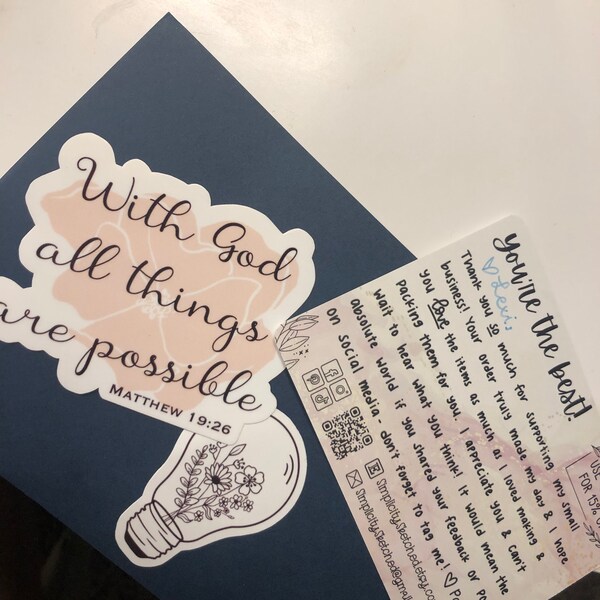 With God
all things
are possible
MATTHEW 19:26
you're the best!
♡ Levi,
Thank you so much for supporting my small
business! Your order truly made my day & I hope
you love the items as much as I loved making &
packing them for you. I appreciate you & can't
wait to hear what you think! It would mean the
absolute world if you shared your feedback or
on social media - don't forget to tag me! ♡
simplicitysketched.etsy.co
simplicitysketched@gmail
USE
FOR 15%